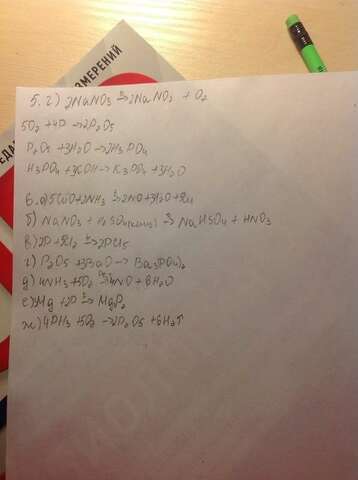 ЗМЕРЕНИЙ
5. г) 2NaNO3 →t 2NaNO2 + O2
5O2 + 4P → 2P2O5
P2O5 + 3H2O → 2H3PO4
H3PO4 + 3KOH → K3PO4 + 3H2O
6. а) 5CuO + 2NH3 →t 2NO + 3H2O +
б) NaNO3 + H2SO4(конц) →t NaHSO4 + HNO3
в) 2P + 5Cl2 →t 2PCl5
г) P2O5 + 3BaO → Ba3(PO4)2
д) 4NH3 + 5O2 → 4NO + 6H2O
е) Mg + 2P →t MgP2
ж) 4PH3 + 5O2 → 2P2O5 + 6H2↑